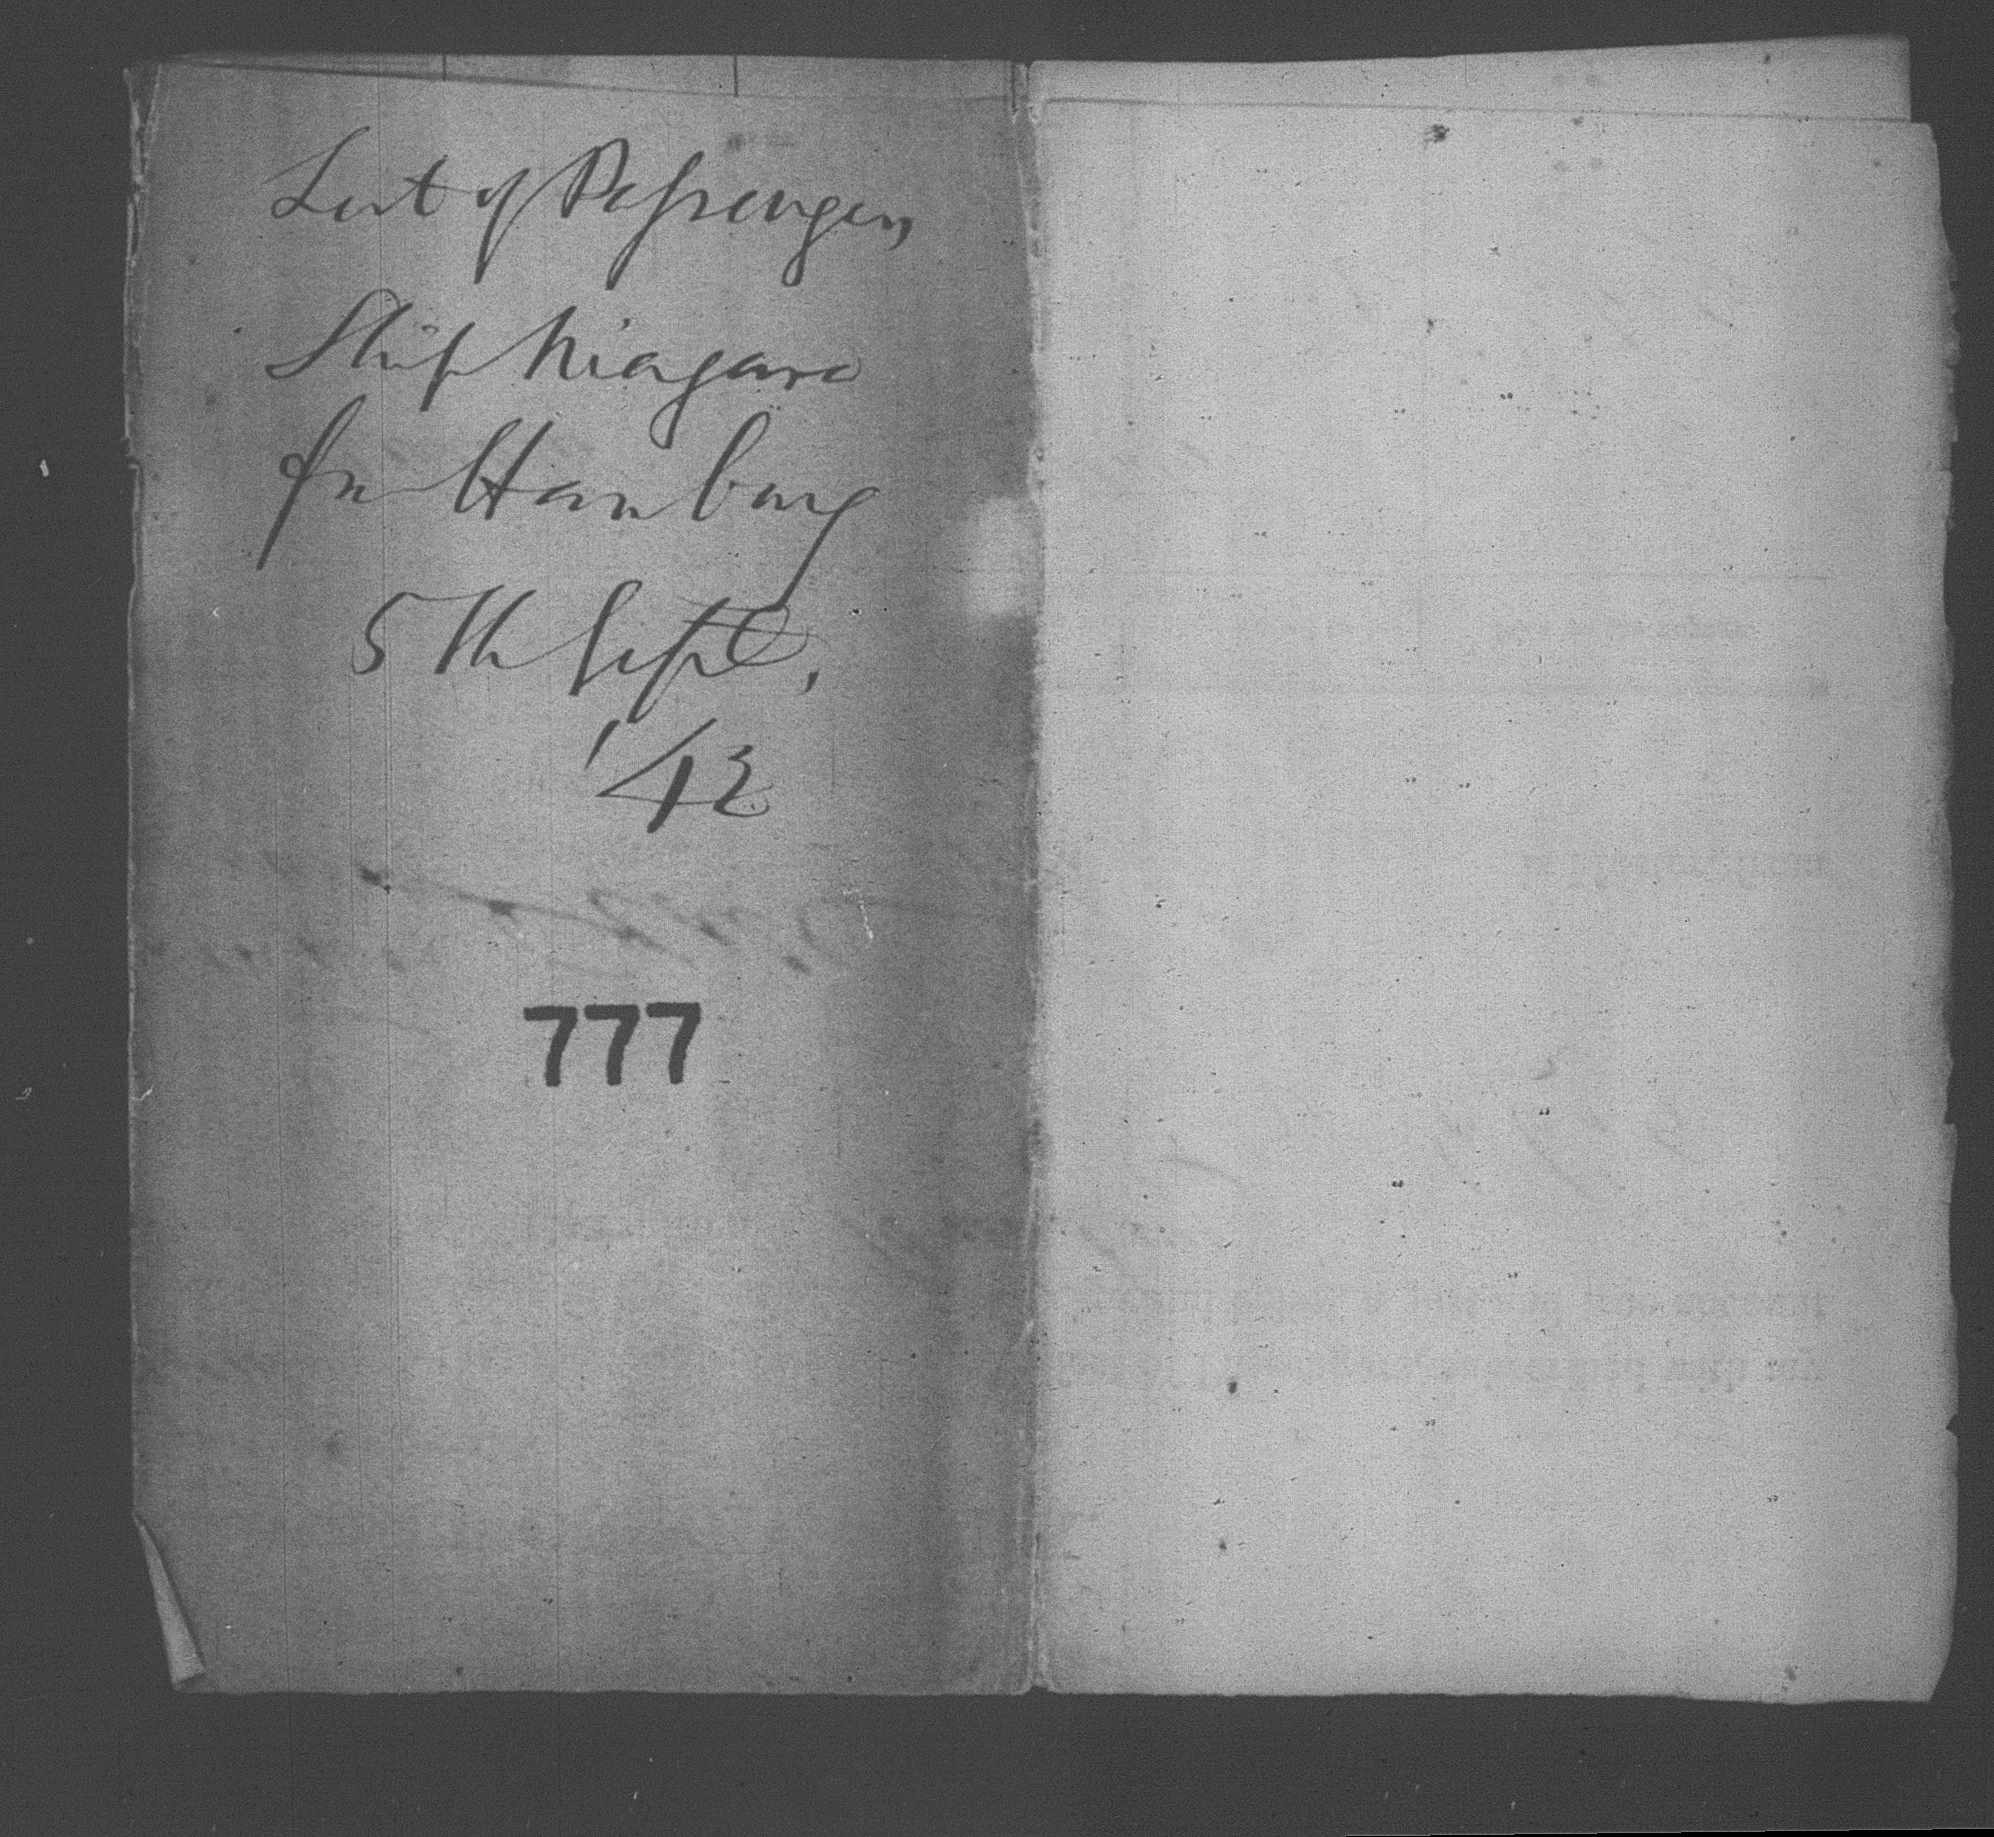 List of Passengers
Ship Niagara
fm Hamburg
5th Sept,
'42
777